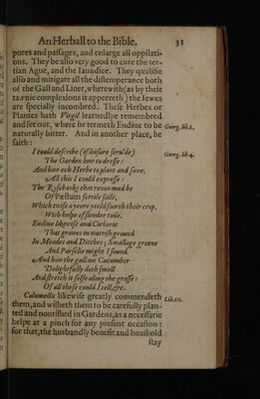 An Herball to the Bible. 38
pores and passages, and enlarge all oppilati-
ons. They be also very good to cure the ter-
tian Ague, and the Iaundice. They qualifie
also and mitigate all the distemperance both
of the Gall and Liuer, wherewith (as by their
tawnie complexions it appeereth) the Iewes
are specially incombred. These Herbes or
Plantes hath Virgil learnedlye remembred
and set out, where he termeth Endiue to be
naturally bitter. And in another place, he
saith:
Georg. lib. 1.
I could describe (if leisure seru'de)
The Garden how to dresse:
Georg. lib. 4.
And how ech Herbe to plant and saue,
All this I could expresse:
The Rosebanks that renowned be
Of Pæstum fertile soile,
Which twise a yeere yeeld foorth their crop,
With helpe of slender toile.
Endiue likewise and Cichorie
That growes in watrish ground
In Meades and Ditches; Smallage greene
And Parselie might I sound.
And how the gallant Cucumber
Delightfully doth smell
And stretch it selfe along the grasse:
Of all these could I tell, &c.
Columella likewise greatly commendeth
Lib. 10.
them, and wisheth them to be carefully plan-
ted and nourished in Gardens, as a necessarie
helpe at a pinch for any present occasion:
for that, the husbandly benefit and houshold
stay